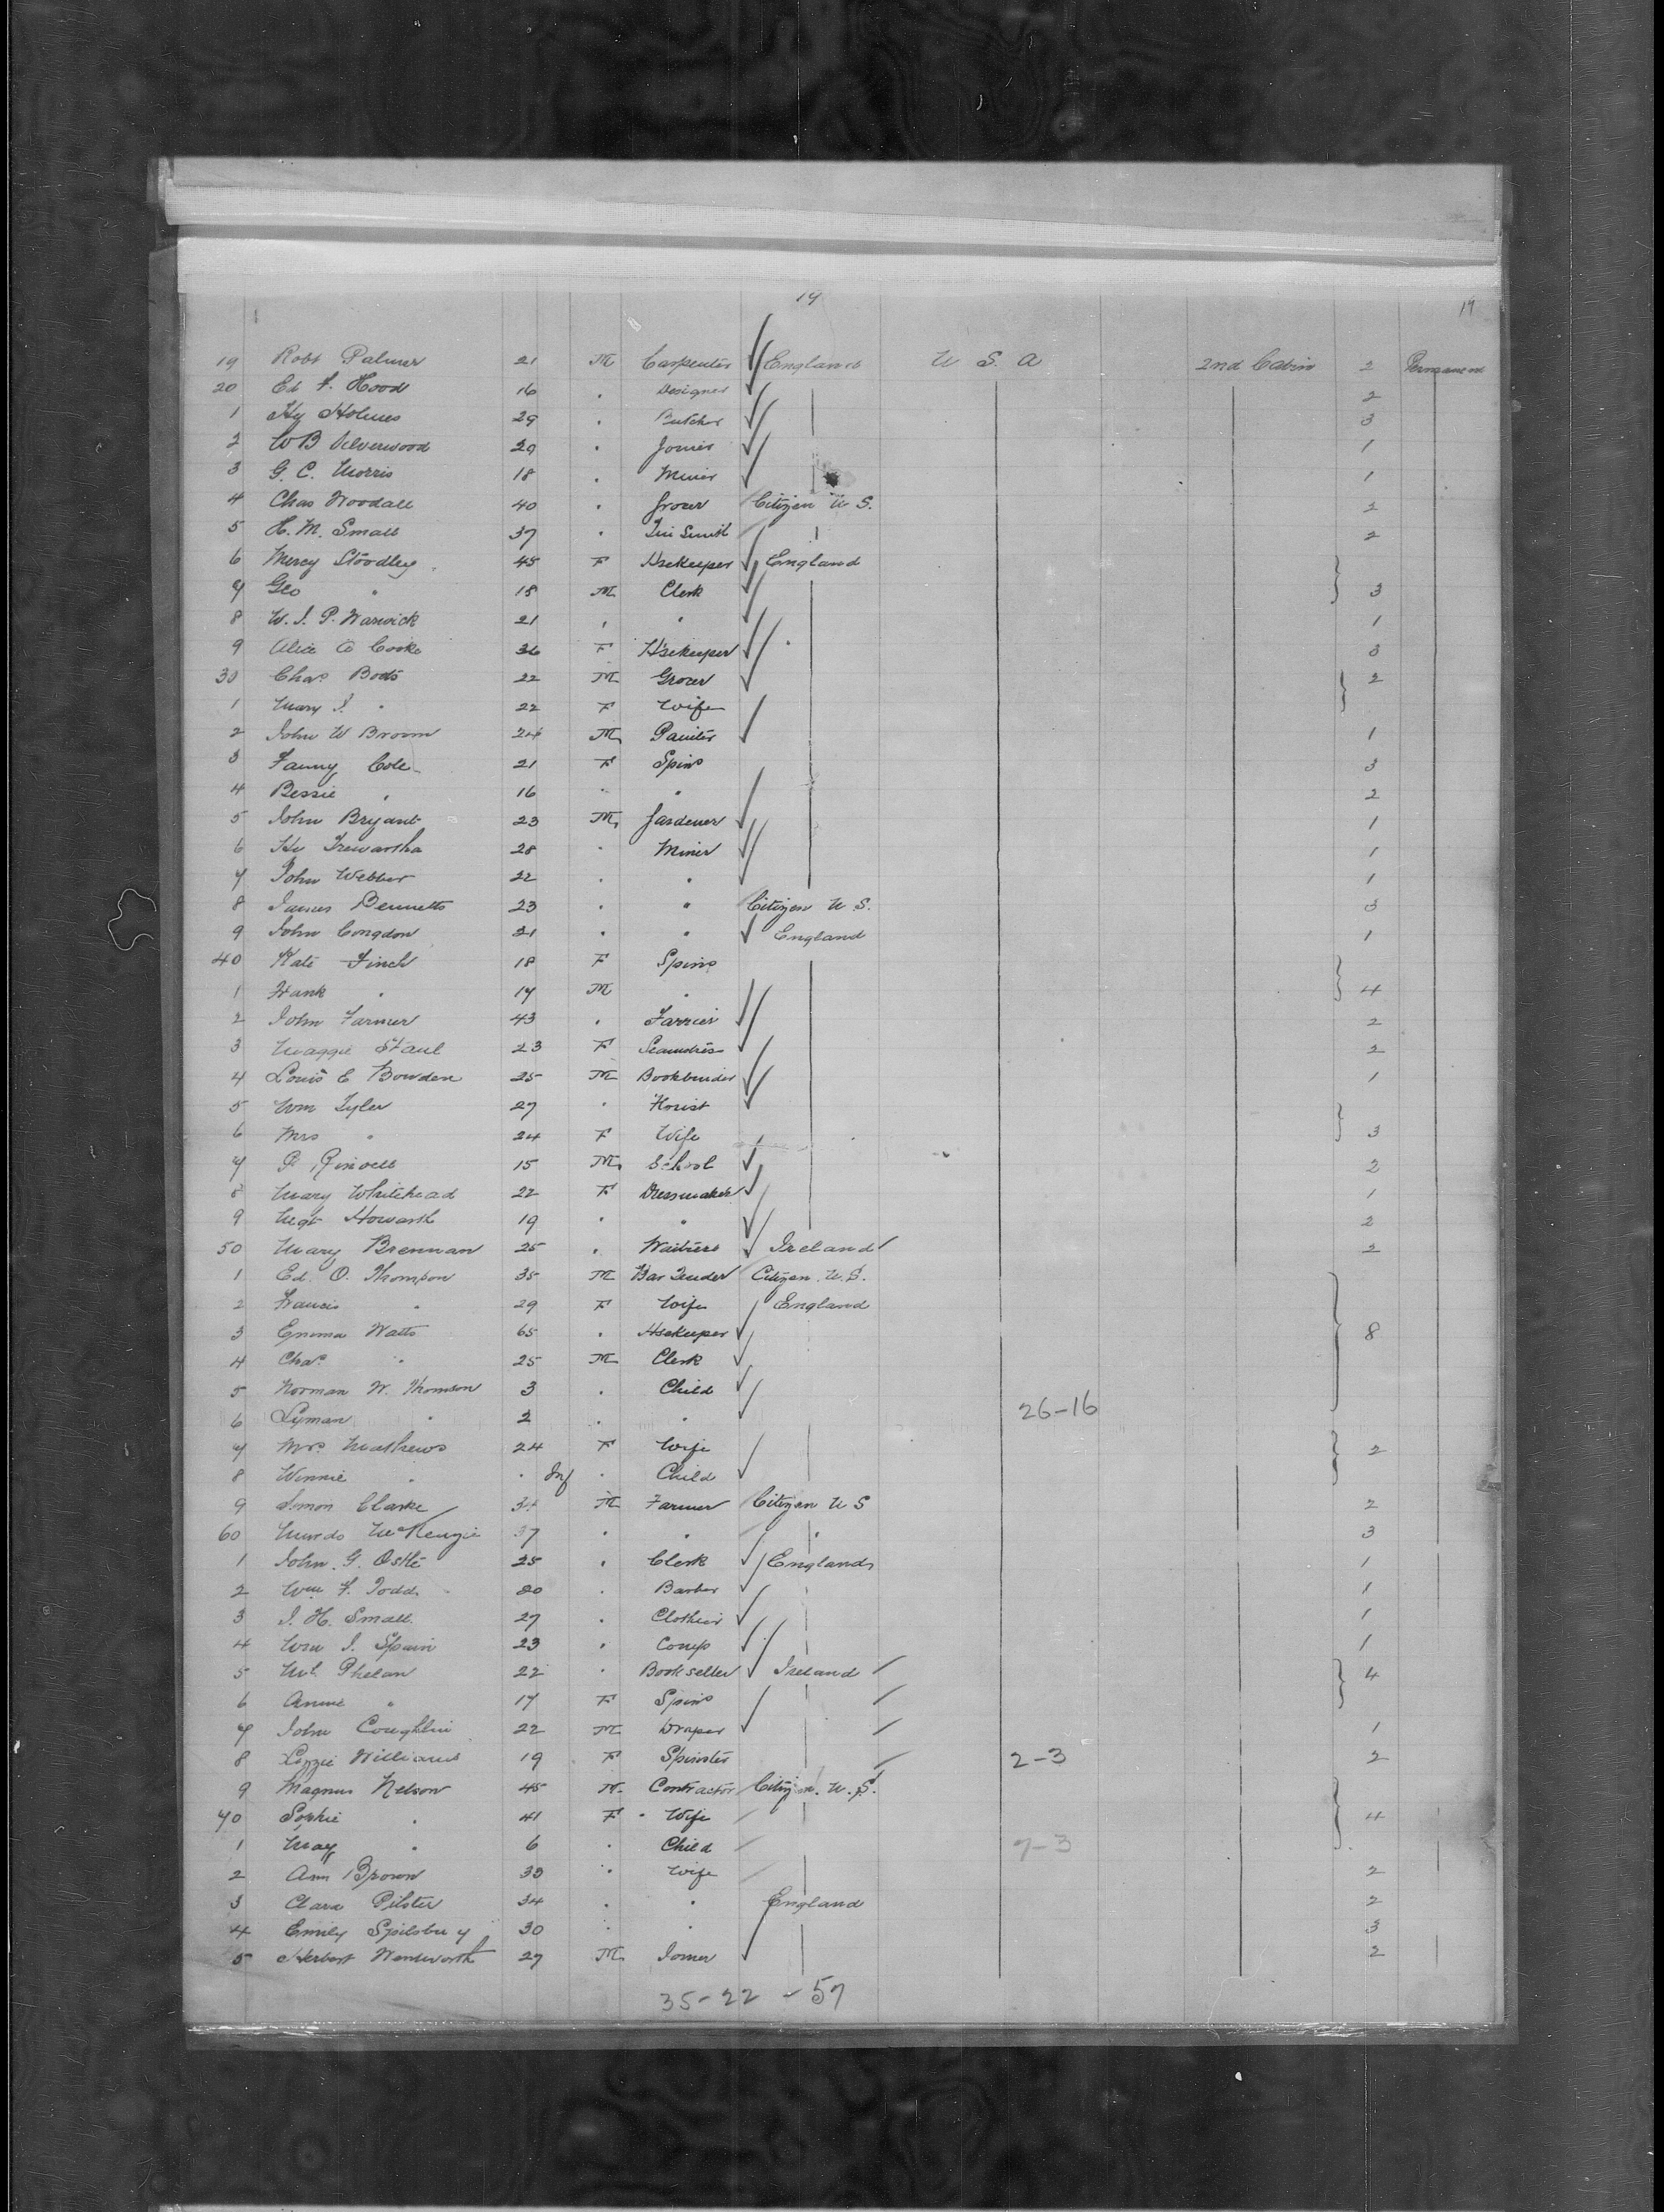 14 17
19 Robt Palmer 21 M Carpenter England U S. A 2nd Cabin 2 Permanent
20 Ed F. Hood 16 . Designer 2
1 Hy Holmes 29 . Butcher 3
2 W B Silverwood 29 . Joiner 1
3 G. C. Morris 18 . Miner 1
4 Chas Woodall 40 . Grocer Citizen U S. 2
5 H. M. Small 37 . Tin Smith 2
6 Mercy Stoodley 45 F Hsekeeper England
7 Geo " 18 M Clerk 3
8 W. J. P. Warwick 21 " " 1
9 Alice Cooke 36 F Hsekeeper 3
30 Chas 22 M Grocer 2
1 Mary J. " 22 F Wife
2 John W Broom 24 M Painter 1
3 Fanny Cole 21 F Spins 3
4 Bessie " 16 " " 2
5 John Bryant 23 M Gardener 1
6 Hy Trewartha 28 . Miner 1
7 John Webber 22 . " 1
8 James Bennetts 23 . " Citizen U S. 3
9 John Congdon 21 " " England 1
40 Kate Finch 18 F Spins
1 Frank " 17 M " 4
2 John Farmer 43 . Farrier 2
3 Maggie 23 F Seamstress 2
4 Louis E Bowden 25 M Bookbinder 1
5 Wm Tyler 27 . Florist
6 Mrs " 24 F Wife 3
7 P 15 M School 2
8 Mary Whitehead 22 F Dressmaker 1
9 Mgt Howarth 19 . " 2
50 Mary Brennan 25 . Waitress Ireland 2
1 Ed. O. Thomson 35 M Bar Tender Citizen U.S.
2 Francis " 29 F Wife England
3 Emma Watts 65 . Hsekeeper 8
4 Chas " 25 M Clerk
5 Norman W. Thomson 3 . Child
26-16
6 Lyman " 2 . "
7 Mrs Mathews 24 F Wife 2
8 Winnie " . Inf . Child
9 Simon Clarke 34 M Farmer Citizen U S 2
60 Murdo McKenzie 37 . " " 3
1 John. G. Ostle 25 . Clerk England 1
2 Wm F. Todd 20 . Barber 1
3 J. H. Small 27 . Clothier 1
4 Wm J. Spain 23 . Comp 1
5 Ml Phelan 22 . Bookseller Ireland 4
6 Annie " 17 F Spins
7 John Coughlin 22 M Draper 1
8 Lizzie Williams 19 F Spinster 2-3 2
9 Magnus Nelson 45 M Contractor Citizen. U.S.
70 Sophie " 41 F Wife 4
1 May " 6 . Child 7-3
2 Ann Brown 33 " Wife 2
3 Clara Pilster 34 . " England 2
4 Emily Spilsbury 30 . " 3
5 Herbert Wentworth 27 M Joiner 2
35-22-57